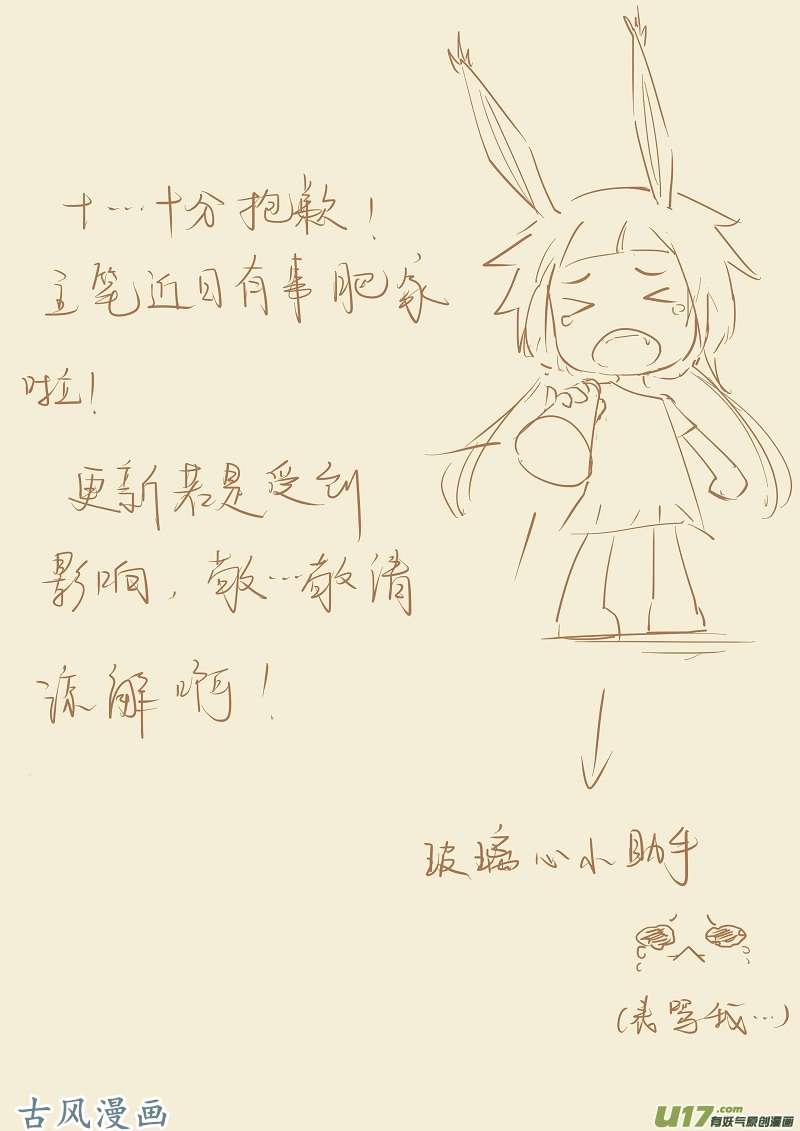 十…十分抱歉！
主笔近日有事肥家
啦！
更新若是受到
影响，敬…敬请
谅解啊！
玻璃心小助手
(表骂我…)
古风漫画
U17.com
有妖气原创漫画